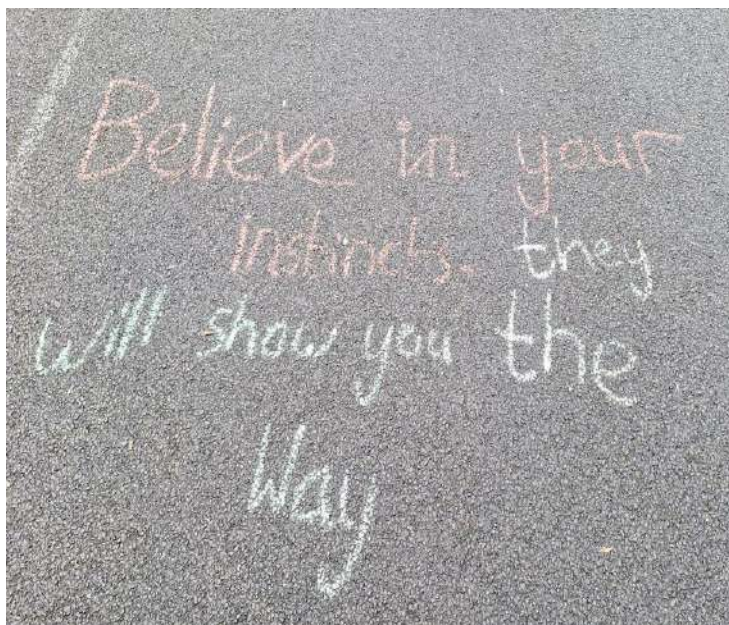 Believe in your
instincts. they
will show you the
Way